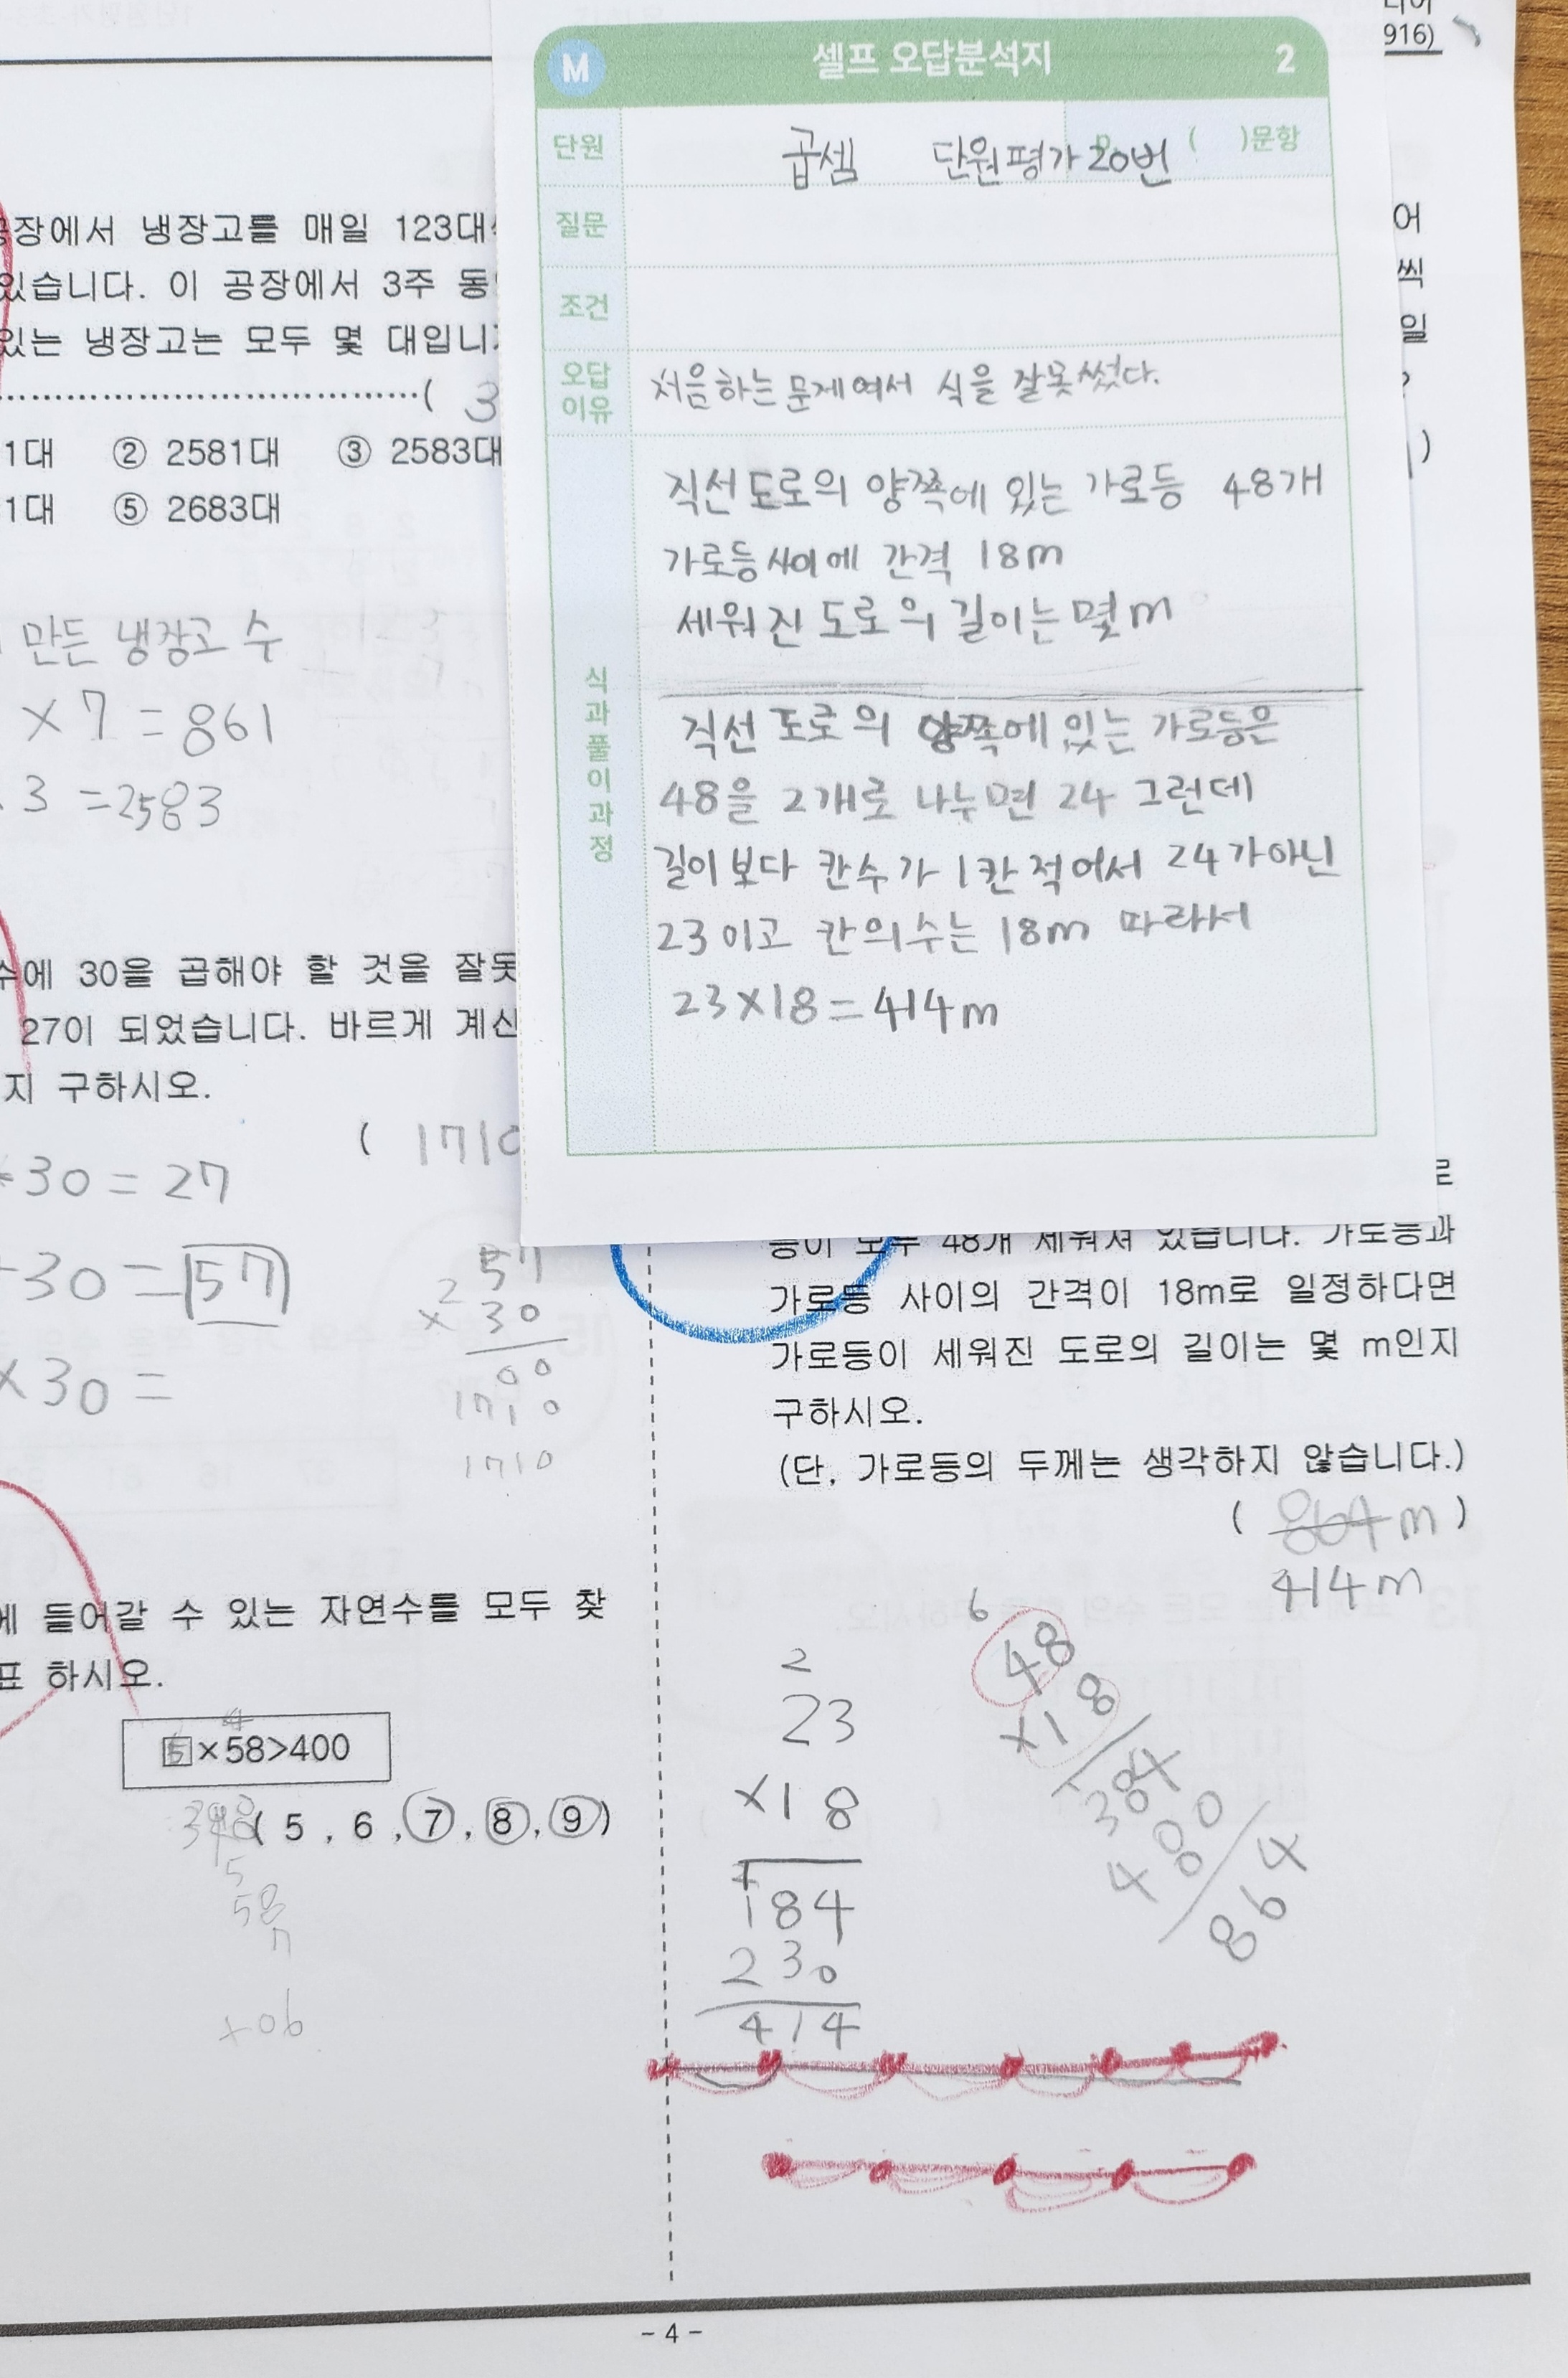 916)
M 셀프 오답분석지 2
단원 곱셈 단원평가 20번 ( )문항
질문
조건
오답
이유
처음하는 문제여서 식을 잘못썼다.
식과풀이과정
직선 도로의 양쪽에 있는 가로등 48개
가로등사이에 간격 18m
세워진 도로의 길이는 몇m
직선 도로의 양쪽에 있는 가로등은
48을 2개로 나누면 24 그런데
길이보다 칸수가 1칸 적어서 24가아닌
23이고 칸의수는 18m 따라서
23×18=414m
공장에서 냉장고를 매일 123대
있습니다. 이 공장에서 3주 동
있는 냉장고는 모두 몇 대입니
( 3
1대 ② 2581대 ③ 2583대
1대 ⑤ 2683대
만든 냉장고 수
×7=861
3=2583
수에 30을 곱해야 할 것을 잘못
27이 되었습니다. 바르게 계산
지 구하시오.
( 1710
30=27
30=57
×30=
57
2
×30
00
1710
1710
에 들어갈 수 있는 자연수를 모두 찾
표 하시오.
×58>400
( 5 , 6 , 7 , 8 , 9 )
5
58
7
어
씩
일
?
)
로
등이 모두 48개 세워져 있습니다. 가로등과
가로등 사이의 간격이 18m로 일정하다면
가로등이 세워진 도로의 길이는 몇 m인지
구하시오.
(단, 가로등의 두께는 생각하지 않습니다.)
( 864m )
414m
2
23
×18
184
230
414
6
48
×18
384
480
864
- 4 -